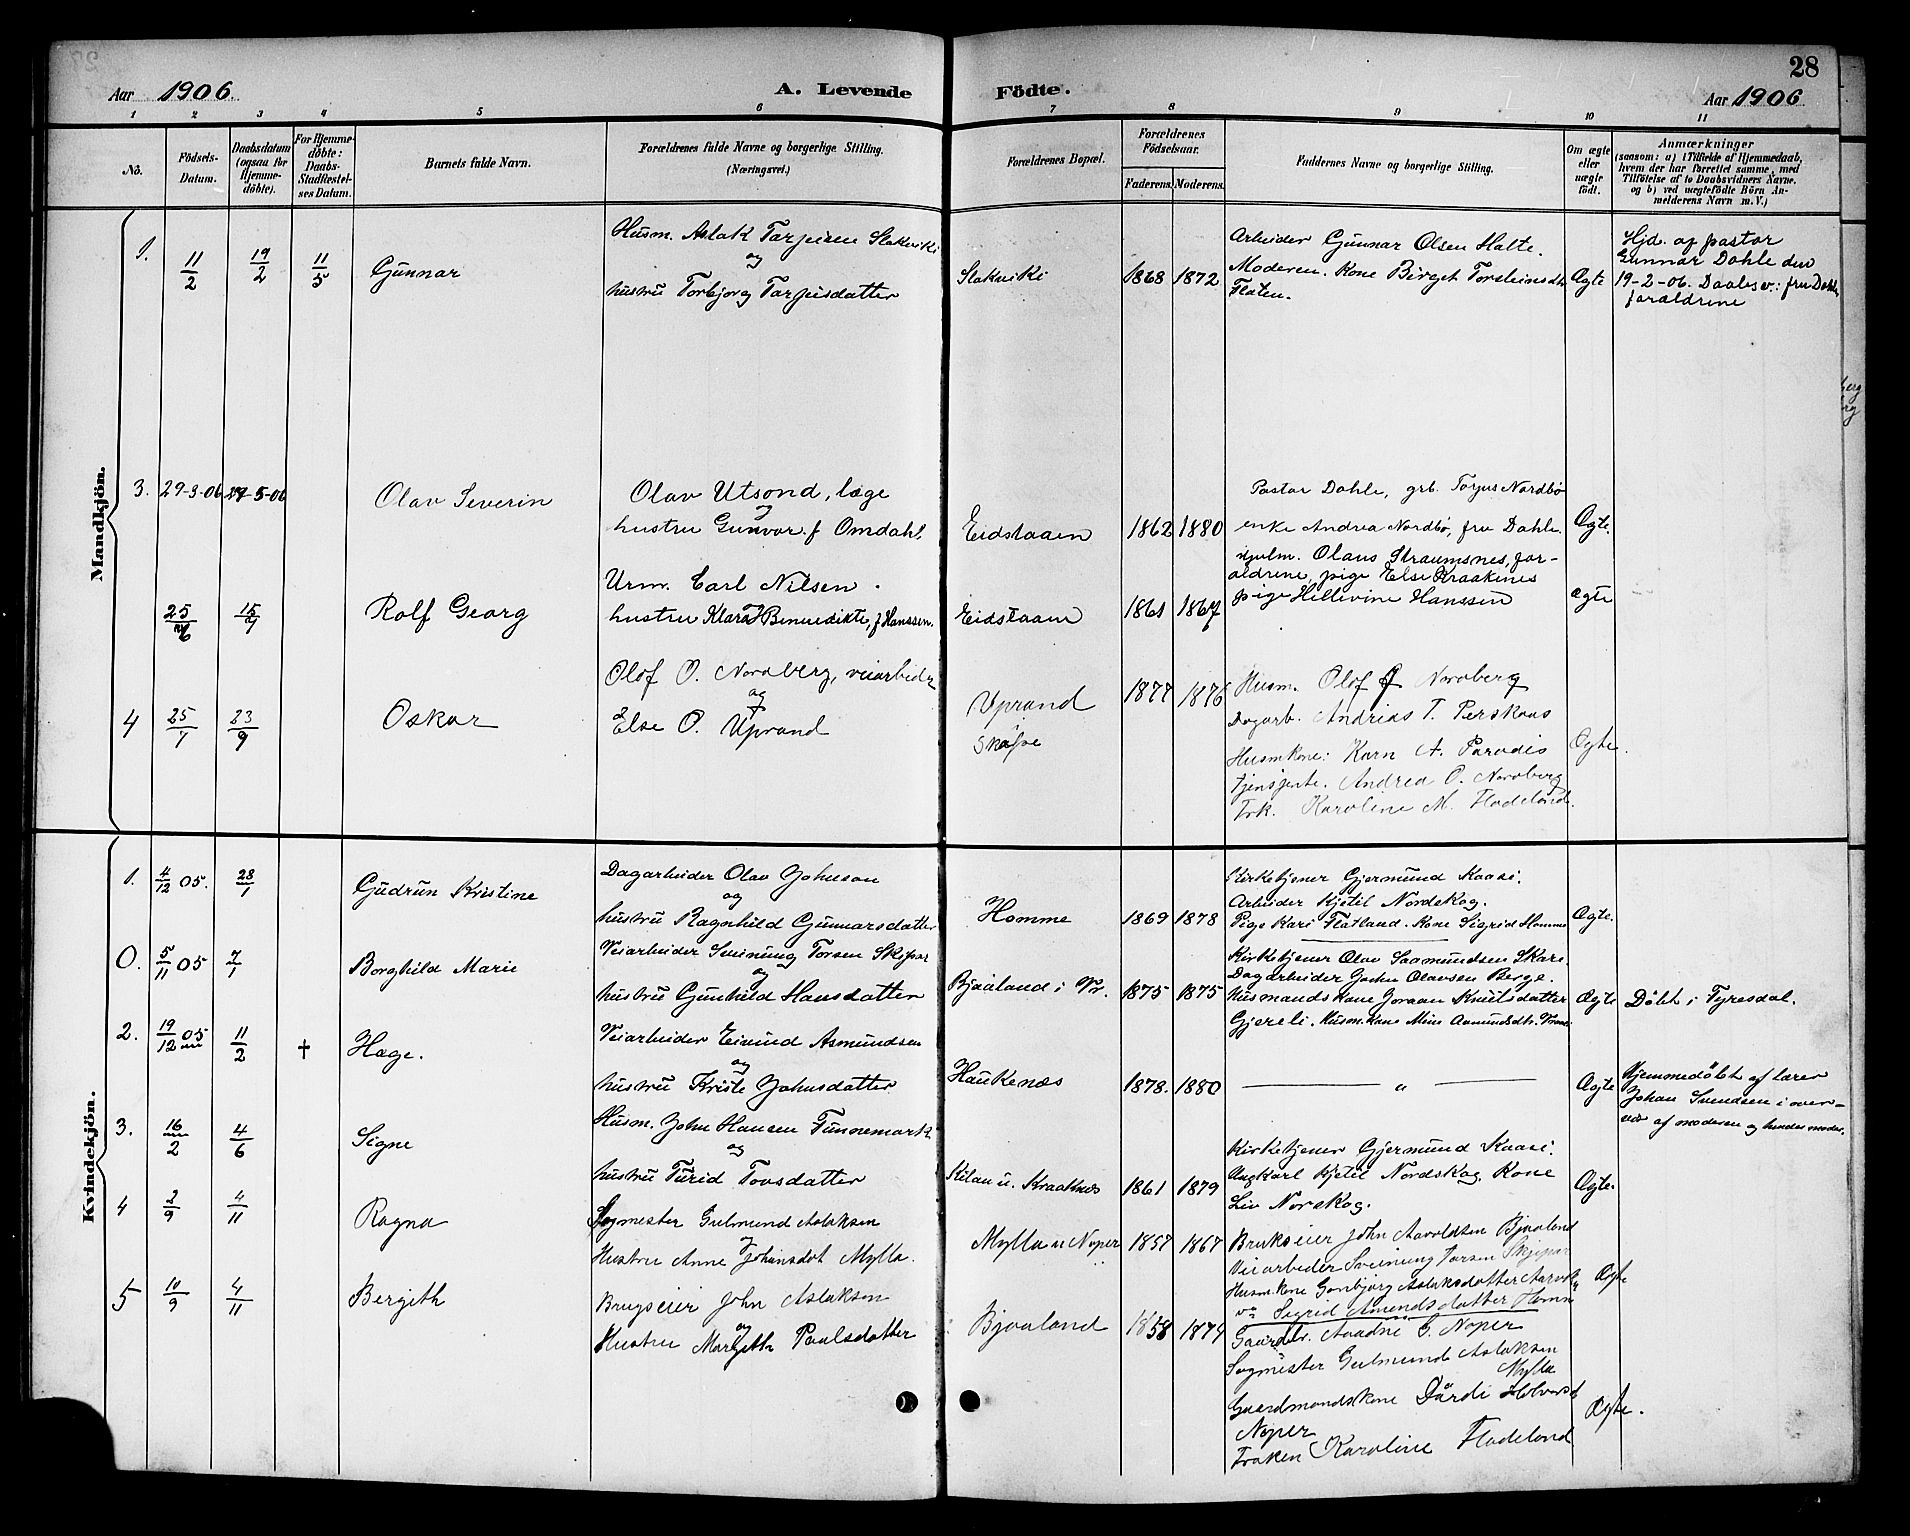 28
Aar 1906.
A. Levende Födte.
Aar 1906
1 2 3 4 5 6 7 8 9 10 11
No.
Födsels-Datum.
Daabsdatum (ogsaa for Hjemmedöbte).
For Hjemmedöbte: Daabs-Stadfestelses Datum.
Barnets fulde Navn.
Forældrenes fulde Navne og borgerlige Stilling. (Næringsvei.)
Forældrenes Bopæl.
Forældrenes Födselsaar.
Faderens. Moderens.
Faddernes Navne og borgerlige Stilling.
Om ægte eller uægte födt.
Anmærkninger
(saasom: a) i Tilfælde af Hjemmedaab,
hvem der har forrettet samme, med
Tilföielse af to Daabsvidners Navne.
og b) ved uægtefödte Börn An-
melderens Navn m. V.)
Mandkjön.
1. 11/2 19/2 11/5 Gunnar
Husm. Aslak Tarjeisen Slakviki
og
hustru Torbjorg Tarjeisdatter
Slakviki 1868 1872
Arbeider Gunnar Olsen Halte.
Moderen. Kone Birget Torsteinsdtr
Flaten.
Ægte
Hjd. af pastor
Gunnar Dahle den
19-2-06. Daabsv.: fru Dahle
forældrene
3. 29-3-06 27-5-06 Olav Severin
Olav Utsond, læge
og
hustru Gunvor f Omdahl.
Eidstaaen 1862 1880
Pastor Dahle, grb. Torjus Nordbø
enke Andrea Nordbø, fru Dahle.
Ægte.
25/6 15/7 Rolf Georg
Urm. Carl Nilsen.
hustru Klara Benedikte, f Hanssen.
Eidstaaen 1861 1867
hjulm. Olaus Straumsnes, for-
ældrene, pige Else Kraakenes
pige Hellevine Hanssen
Ægte
4 25/1 23/9 Oskar
Olof O. Nordberg, veiarbeidr
og
Else O. Uprand
Uprand
Skafse
1877 1876
Husm. Olof O Nordberg
Dagarb. Andrias T. Perskaas
Husmkone: Karn A. Paradis
tjenstjente. Andrea O. Nordberg
Frk. Karoline M. Fladeland.
Ægte.
Kvindekjön.
1. 4/12 05. 28/1 Gudrun Kristine
Dagarbeider Olav Johnson
og
hustru Ragnhild Gunnarsdatter
Homme 1869 1878
Kirketjener Gjermund Kaasi.
Arbeider Kjetil Nordskog.
Pige Kari Flatland. Kone Sigrid Homme
Ægte.
0. 5/11 05 7/1 Borghild Marie
Veiarbeider Sveinung Torsen Skjpar
og
hustru Gunhild Hansdatter
Bjaaland i Vr. 1875 1875
Kirketjener Olav Saamundsen Skare.
Dagarbeider John Olavsen Berge.
Husmands kone Joraan Knutsdatter
Gjereli. Husm. kone Mine Aamundsdtr.
Ægte
Döbt i Fyresdal.
2. 19/12 05 11/2 † Hæge.
Veiarbeider Eivind Asmundsen
og
hustru Kriste Johnsdatter
Haukenæs 1878. 1880
„
Ægte
Hjemmedöbt af lærer
Johan Svendsen i over-
vær af moderen og hendes moder.
3. 16/2 4/6 Signe
Husm. John Hansen Tunnemark
og
hustru Turid Tovsdatter
Kilan u. Kraaknæs 1861 1879
Kirketjener Gjermund Kaasi.
Ungkarl Kjetil Nordskog. Kone
Liv Norskog.
Ægte.
4 2/9 4/11 Ragna
Sagmester Gulmund Aslaksen
og
Hustru Anne Johansdot Mylla.
Mylla u Noper 1857 1867
Brukseier John Aavoldsen Bjaaland
Veiarbeider Sveinung Torsen Skjpar
Husm. kone Gunbjørg Aslaksdatter
Sigrid Amundsdatter Homm
Ægte
5 10/9 4/11 Bergith
Brugseier John Aslaksen
og
Hustru Margith Paulsdatter
Bjaaland 1858 1874
Gaardbr. Aadne G. Noper
Sagmester Gulmund Aslaksen
Mylla
Gaardmandskone Dårdi Holvorsd
Noper
Frøken Karoline Fladeland
Ægte.